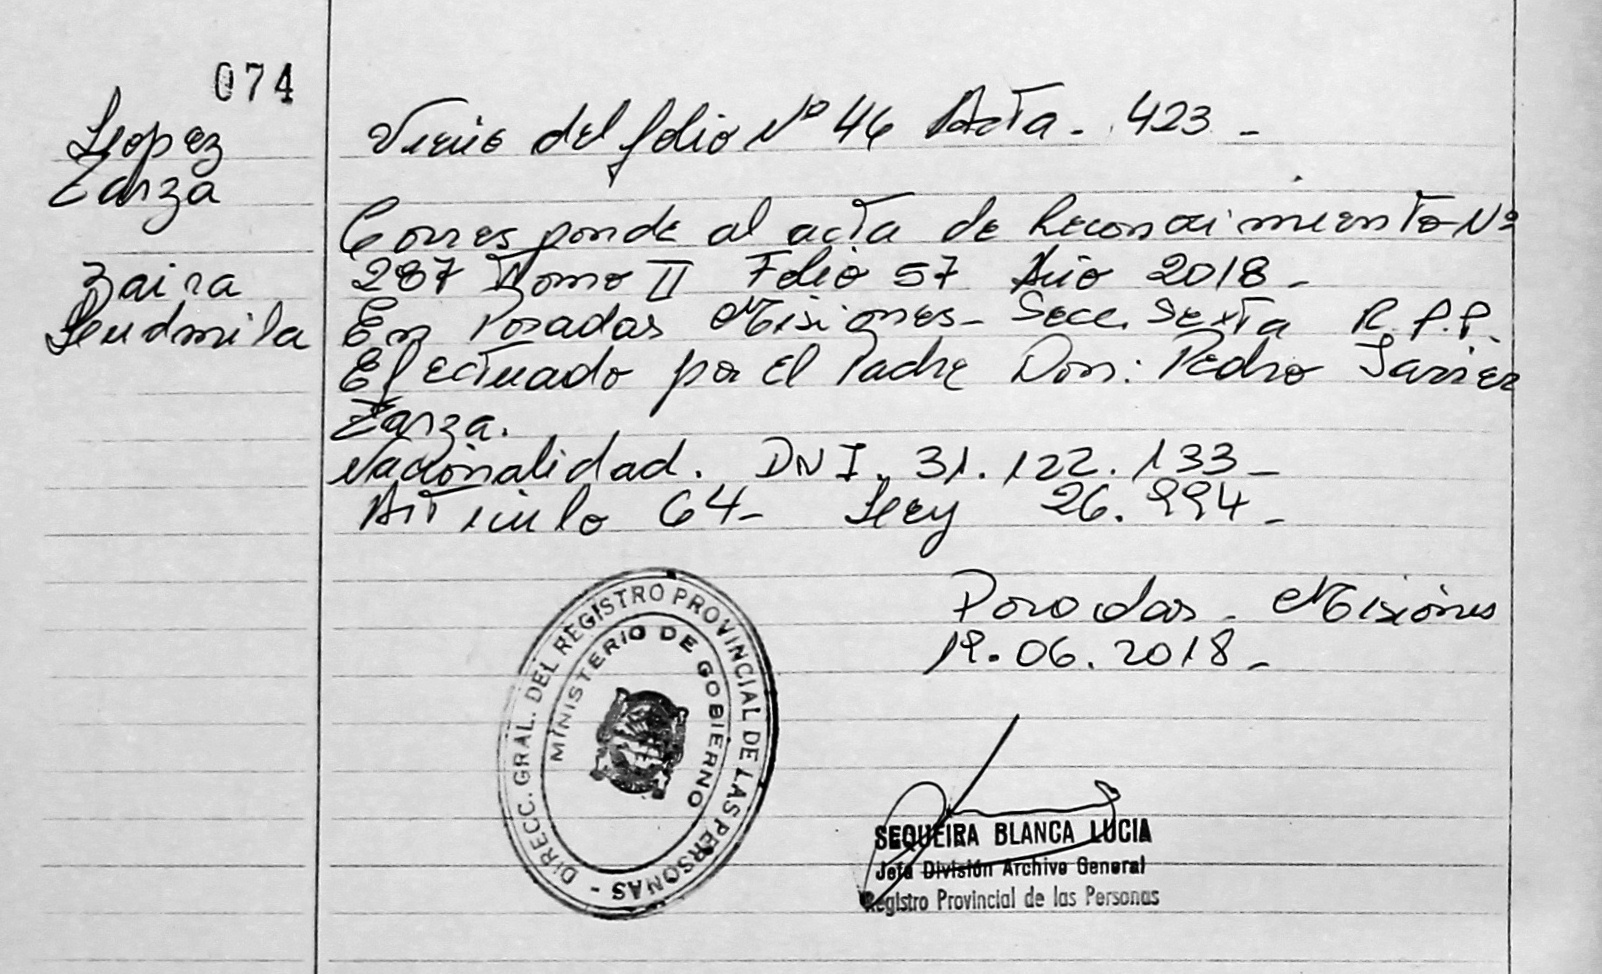 074
Lopez
Zarza
Zaira
Leudmila
Viene del folio Nº 46 Acta - 423 -
Corresponde al acta de Reconocimiento Nº
287 Tomo II Folio 57 Año 2018 -
En Posadas Misiones - Secc. Sexta R.P.P.
Efectuado por el Padre Don: Pedro Javier
Zarza.
Nacionalidad. DNI. 31.122.133 -
Articulo 64 - Ley 26.994 -
Posadas - Misiones
19.06.2018 -
DIRECC. GRAL. DEL REGISTRO PROVINCIAL DE LAS PERSONAS -
MINISTERIO DE GOBIERNO
SEQUEIRA BLANCA LUCIA
Jefa División Archivo General
Registro Provincial de las Personas